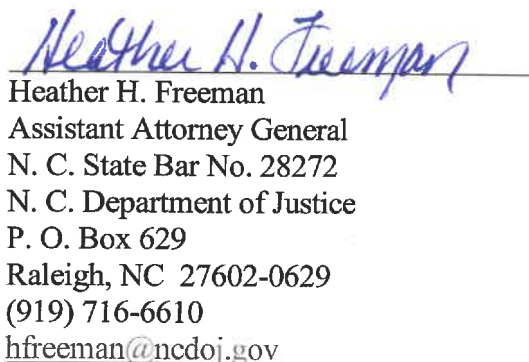 Heather H. Freeman
Heather H. Freeman
Assistant Attorney General
N. C. State Bar No. 28272
N. C. Department of Justice
P. O. Box 629
Raleigh, NC 27602-0629
(919) 716-6610
hfreeman@ncdoj.gov